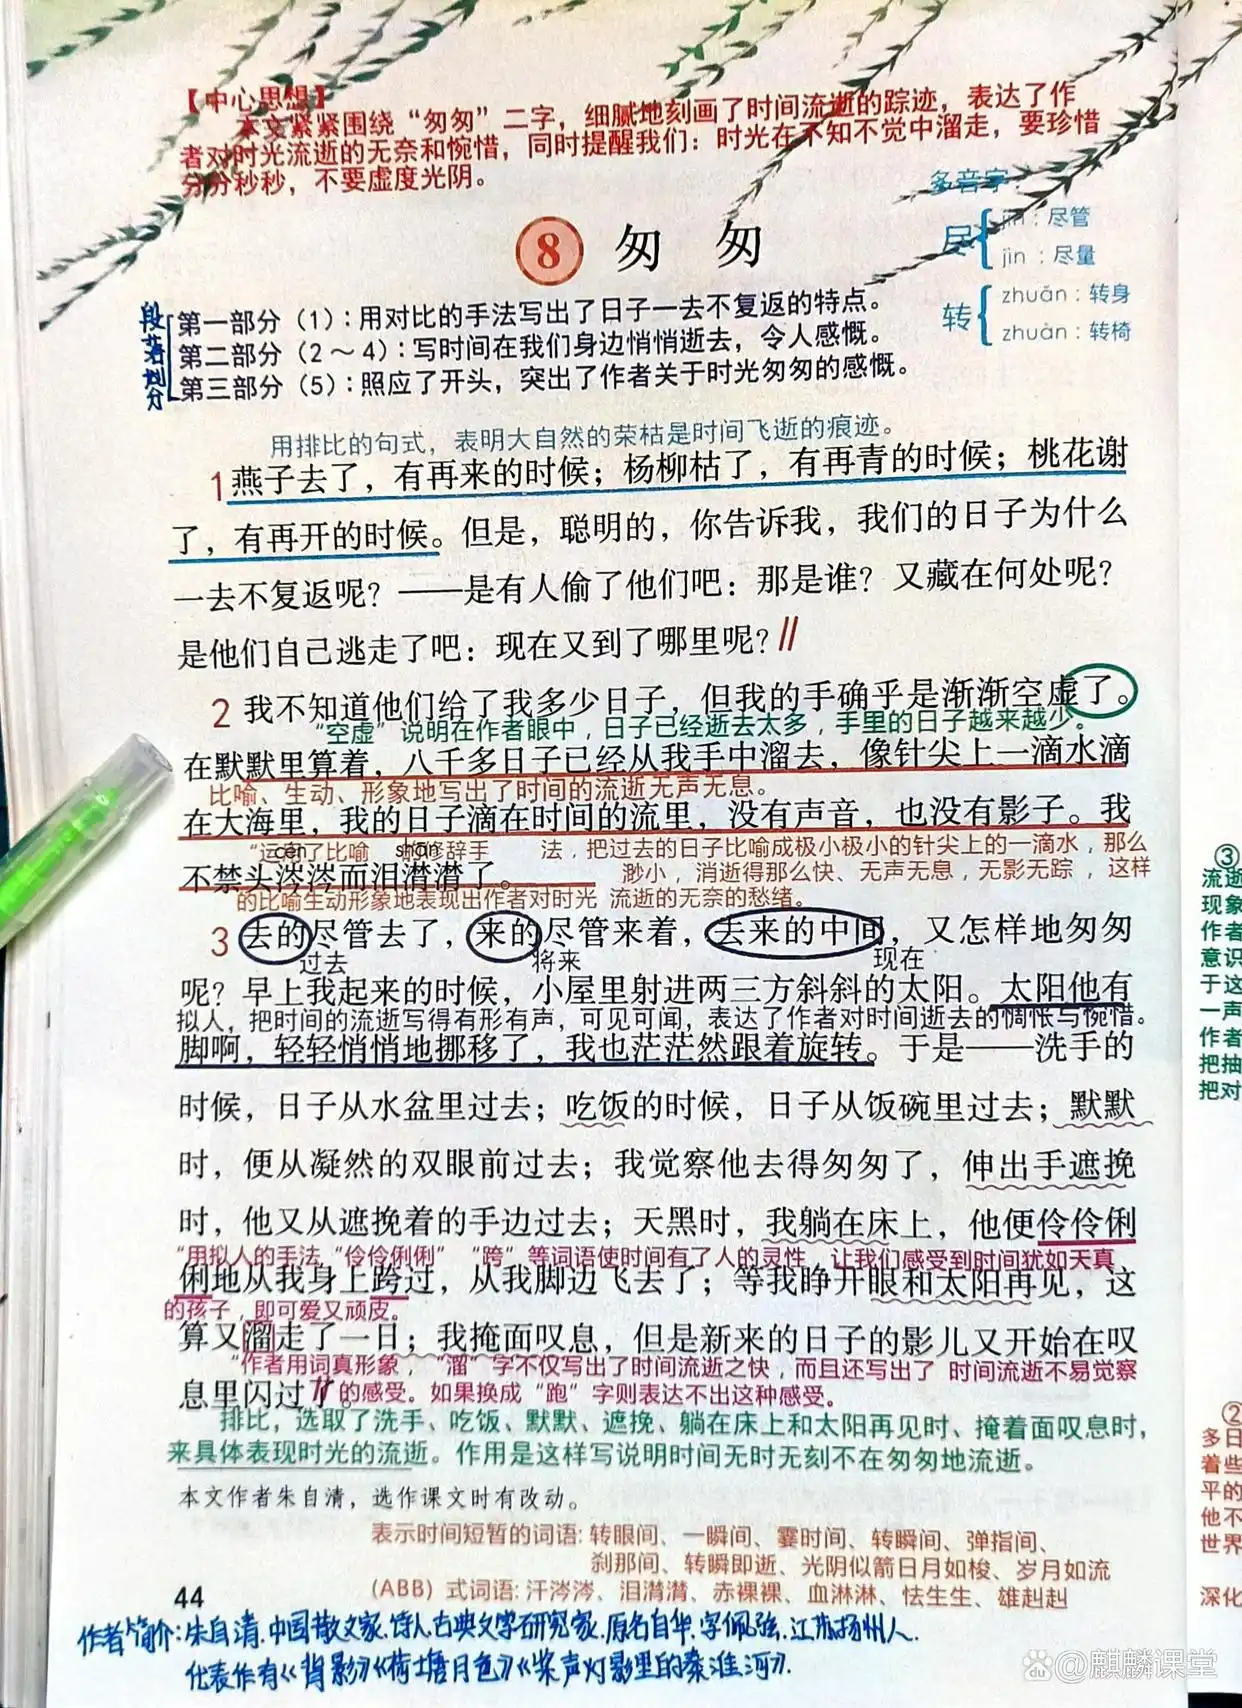 【中心思想】
本文紧紧围绕“匆匆”二字，细腻地刻画了时间流逝的踪迹，表达了作
者对时光流逝的无奈和惋惜，同时提醒我们：时光在不知不觉中溜走，要珍惜
分分秒秒，不要虚度光阴。
多音字：
尽
jǐn：尽管
jìn：尽量
转
zhuǎn：转身
zhuàn：转椅
8 匆匆
段落划分
第一部分（1）：用对比的手法写出了日子一去不复返的特点。
第二部分（2～4）：写时间在我们身边悄悄逝去，令人感慨。
第三部分（5）：照应了开头，突出了作者关于时光匆匆的感慨。
用排比的句式，表明大自然的荣枯是时间飞逝的痕迹。
1 燕子去了，有再来的时候；杨柳枯了，有再青的时候；桃花谢
了，有再开的时候。但是，聪明的，你告诉我，我们的日子为什么
一去不复返呢？——是有人偷了他们吧：那是谁？又藏在何处呢？
是他们自己逃走了吧：现在又到了哪里呢？
2 我不知道他们给了我多少日子，但我的手确乎是渐渐空虚了。
“空虚”说明在作者眼中，日子已经逝去太多，手里的日子越来越少。
在默默里算着，八千多日子已经从我手中溜去，像针尖上一滴水滴
比喻、生动、形象地写出了时间的流逝无声无息。
在大海里，我的日子滴在时间的流里，没有声音，也没有影子。我
“运用了比喻 的修辞手 法，把过去的日子比喻成极小极小的针尖上的一滴水，那么
cén shān
不禁头涔涔而泪潸潸了。
渺小，消逝得那么快、无声无息，无影无踪，这样
的比喻生动形象地表现出作者对时光 流逝的无奈的愁绪。
3 去的尽管去了，来的尽管来着，去来的中间，又怎样地匆匆
过去 将来 现在
呢？早上我起来的时候，小屋里射进两三方斜斜的太阳。太阳他有
拟人，把时间的流逝写得有形有声，可见可闻，表达了作者对时间逝去的惆怅与惋惜。
脚啊，轻轻悄悄地挪移了，我也茫茫然跟着旋转。于是——洗手的
时候，日子从水盆里过去；吃饭的时候，日子从饭碗里过去；默默
时，便从凝然的双眼前过去；我觉察他去得匆匆了，伸出手遮挽
时，他又从遮挽着的手边过去；天黑时，我躺在床上，他便伶伶俐
“用拟人的手法，“伶伶俐俐”“跨”等词语使时间有了人的灵性，让我们感受到时间犹如天真
俐地从我身上跨过，从我脚边飞去了；等我睁开眼和太阳再见，这
的孩子，即可爱又顽皮。
算又溜走了一日；我掩面叹息，但是新来的日子的影儿又开始在叹
“作者用词真形象，“溜”字不仅写出了时间流逝之快，而且还写出了 时间流逝不易觉察
息里闪过了。
的感受。如果换成“跑”字则表达不出这种感受。
排比，选取了洗手、吃饭、默默、遮挽、躺在床上和太阳再见时、掩着面叹息时，
来具体表现时光的流逝。作用是这样写说明时间无时无刻不在匆匆地流逝。
本文作者朱自清，选作课文时有改动。
表示时间短暂的词语：转眼间、一瞬间、霎时间、转瞬间、弹指间、
刹那间、转瞬即逝、光阴似箭日月如梭、岁月如流
（ABB）式词语：汗涔涔、泪潸潸、赤裸裸、血淋淋、怯生生、雄赳赳
44
作者简介：朱自清，中国散文家、诗人、古典文学研究家，原名自华，字佩弦，江苏扬州人.
代表作有《背影》《荷塘月色》《桨声灯影里的秦淮河》.
③
流逝
现象
作者
意识
于这
一声
作者
把抽
把对
②
多日
着些
平的
他不
世界
深化
Bai du @麒麟课堂